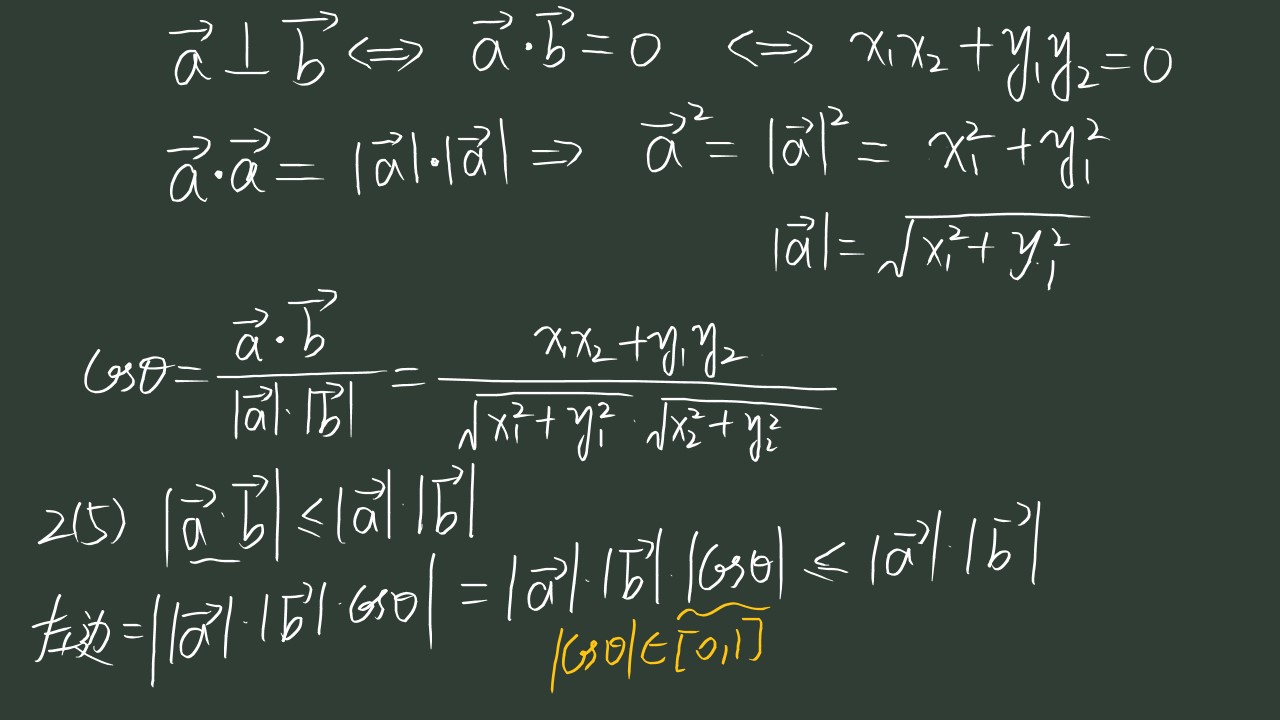 $\vec{a} \perp \vec{b} \Leftrightarrow \vec{a} \cdot \vec{b} = 0 \Leftrightarrow x_1x_2 + y_1y_2 = 0$
$\vec{a} \cdot \vec{a} = |\vec{a}| \cdot |\vec{a}| \Rightarrow \vec{a}^2 = |\vec{a}|^2 = x_1^2 + y_1^2$
$|\vec{a}| = \sqrt{x_1^2 + y_1^2}$
$\cos\theta = \frac{\vec{a} \cdot \vec{b}}{|\vec{a}| \cdot |\vec{b}|} = \frac{x_1x_2 + y_1y_2}{\sqrt{x_1^2 + y_1^2} \cdot \sqrt{x_2^2 + y_2^2}}$
2(5) $|\vec{a} \cdot \vec{b}| \leq |\vec{a}| \cdot |\vec{b}|$
左边 $= ||\vec{a}| \cdot |\vec{b}| \cdot \cos\theta| = |\vec{a}| \cdot |\vec{b}| \cdot |\cos\theta| \leq |\vec{a}| \cdot |\vec{b}|$
$|\cos\theta| \in [0,1]$